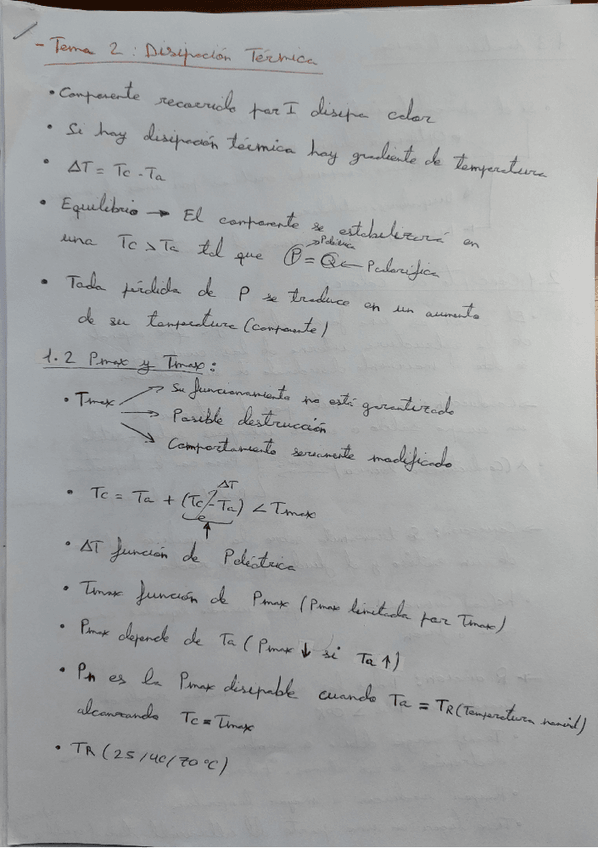 - Tema 2: Disipación Térmica
• Componente recorrido por I disipa calor
• Si hay disipación térmica hay gradiente de temperatura
• ΔT = Tc - Ta
• Equilibrio → El componente se estabilizará en
una Tc > Ta tal que P = Q ← P calorífica
• Toda pérdida de P se traduce en un aumento
de su temperatura (componente)
1.2 Pmax y Tmax:
• Tmax → Su funcionamiento no está garantizado
→ Posible destrucción
→ Comportamiento seriamente modificado
ΔT
• Tc = Ta + (Tc - Ta) < Tmax
• ΔT función de Peléctrica
• Tmax función de Pmax (Pmax limitada por Tmax)
• Pmax depende de Ta (Pmax ↓ si Ta ↑)
• Pn es la Pmax disipable cuando Ta = TR (Temperatura nominal)
alcanzando Tc = Tmax
• TR (25/40/70 °C)